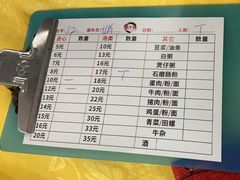 12 日期: 人数: 丁
点心 数量 汤类 数量 其它
5元 10元 豆浆/油条
6元 12元 白粥
7元 13元 煲仔粥
8元 17元 丁 石磨肠粉
10元 一 18元 蛋肉/粉/面
12元 二 20元 牛肉/粉/面
13元 22元 猪肉/粉/面
15元 25元 鸡蛋/粉/面
16元 28元 青菜/田螺
18元 30元 牛杂
20元 35元 酒